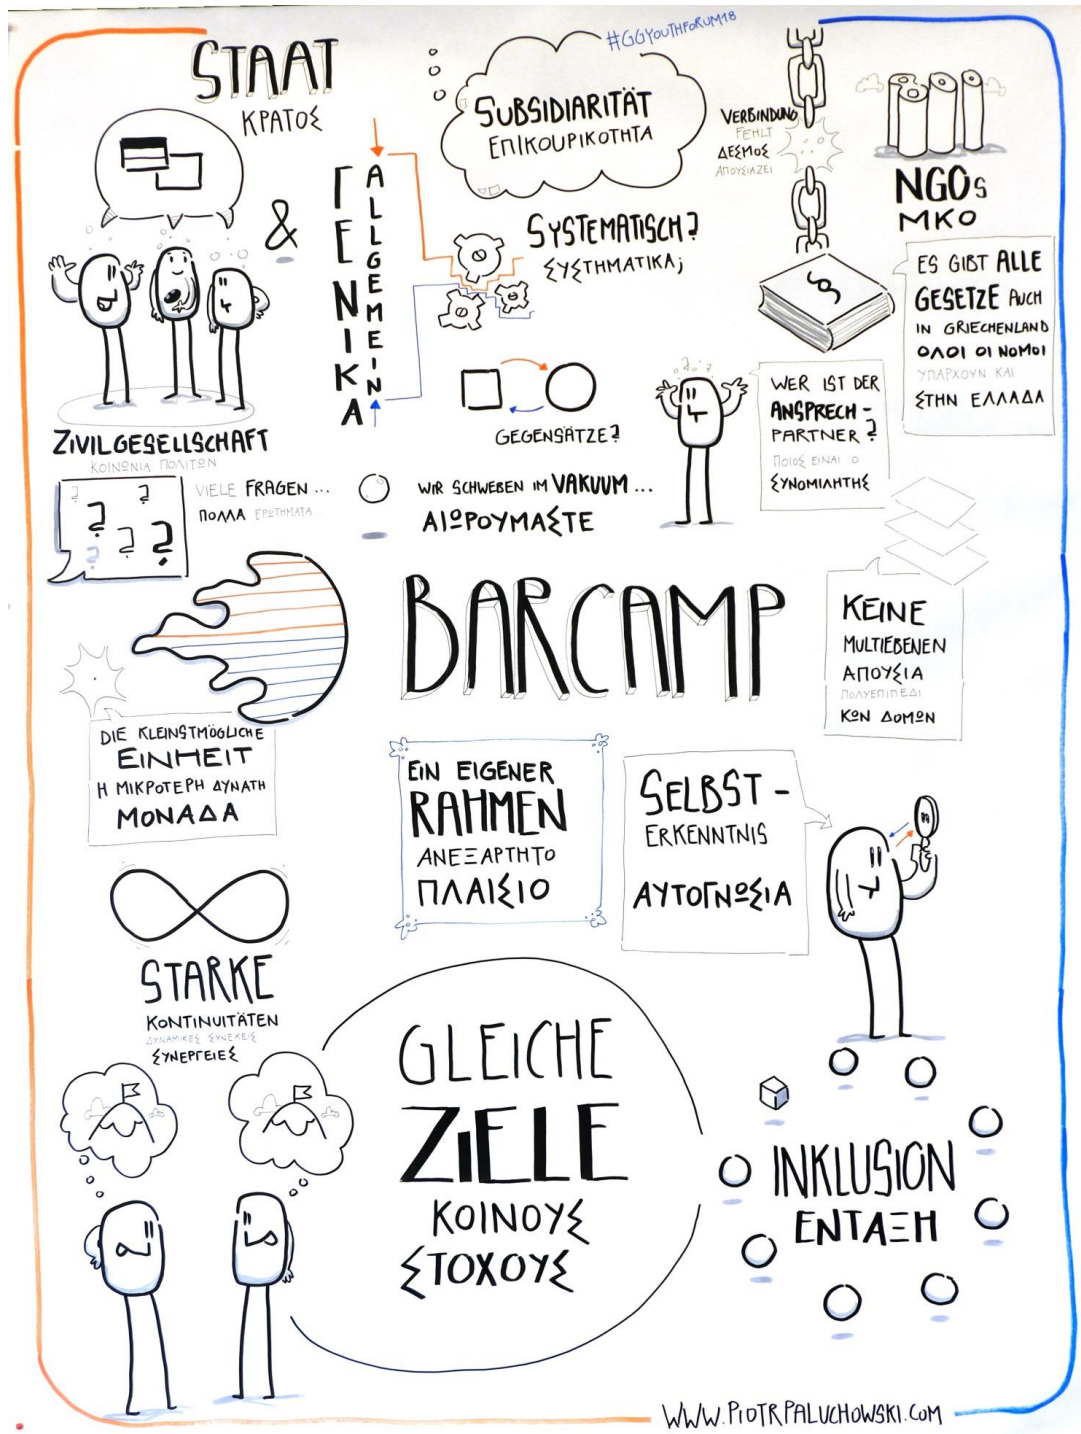 #GGYOUTHFORUM18
STAAT
ΚΡΑΤΟΣ
&
ΓΕΝΙΚΑ
ALLGEMEIN
SUBSIDIARITÄT
ΕΠΙΚΟΥΡΙΚΟΤΗΤΑ
VERBINDUNG
FEHLT
ΔΕΣΜΟΣ
ΑΠΟΥΣΙΑΖΕΙ
NGOs
ΜΚΟ
SYSTEMATISCH?
ΣΥΣΤΗΜΑΤΙΚΑ;
§
ES GIBT ALLE
GESETZE AUCH
IN GRIECHENLAND
ΟΛΟΙ ΟΙ ΝΟΜΟΙ
ΥΠΑΡΧΟΥΝ ΚΑΙ
ΣΤΗΝ ΕΛΛΑΔΑ
ZIVILGESELLSCHAFT
ΚΟΙΝΩΝΙΑ ΠΟΛΙΤΩΝ
GEGENSÄTZE?
? ? ?
WER IST DER
ANSPRECH-
PARTNER?
ΠΟΙΟΣ ΕΙΝΑΙ Ο
ΣΥΝΟΜΙΛΗΤΗΣ
? ? ? ? ? ?
VIELE FRAGEN...
ΠΟΛΛΑ ΕΡΩΤΗΜΑΤΑ...
WIR SCHWEBEN IM VAKUUM...
ΑΙΩΡΟΥΜΑΣΤΕ
BARCAMP
KEINE
MULTIEBENEN
ΑΠΟΥΣΙΑ
ΠΟΛΥΕΠΙΠΕΔΙ
ΚΩΝ ΔΟΜΩΝ
DIE KLEINSTMÖGLICHE
EINHEIT
Η ΜΙΚΡΟΤΕΡΗ ΔΥΝΑΤΗ
ΜΟΝΑΔΑ
EIN EIGENER
RAHMEN
ΑΝΕΞΑΡΤΗΤΟ
ΠΛΑΙΣΙΟ
SELBST-
ERKENNTNIS
ΑΥΤΟΓΝΩΣΙΑ
STARKE
KONTINUITÄTEN
ΔΥΝΑΜΙΚΕΣ ΣΥΝΕΧΕΙΣ
ΣΥΝΕΡΓΕΙΕΣ
GLEICHE
ZIELE
ΚΟΙΝΟΥΣ
ΣΤΟΧΟΥΣ
INKLUSION
ΕΝΤΑΞΗ
WWW.PIOTRPALUCHOWSKI.COM